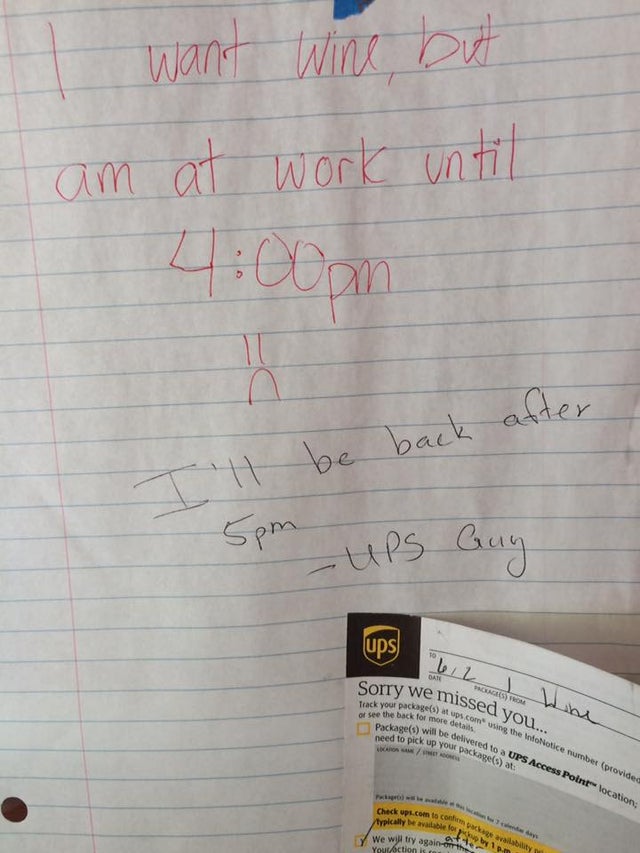 I want wine, but
am at work until
4:00pm
I'll be back after
5pm
-UPS Guy
ups
TO
6/2 1 Wine
DATE PACKAGE(S) FROM
Sorry we missed you...
Track your package(s) at ups.com® using the InfoNotice number (provided
or see the back for more details.
Package(s) will be delivered to a UPS Access Point™ location;
need to pick up your package(s) at:
LOCATION NAME / STREET ADDRESS
Package(s) will be available at this location for 7 calendar days
Check ups.com to confirm package availability
typically be available for pickup by 1 p.m.
We will try again